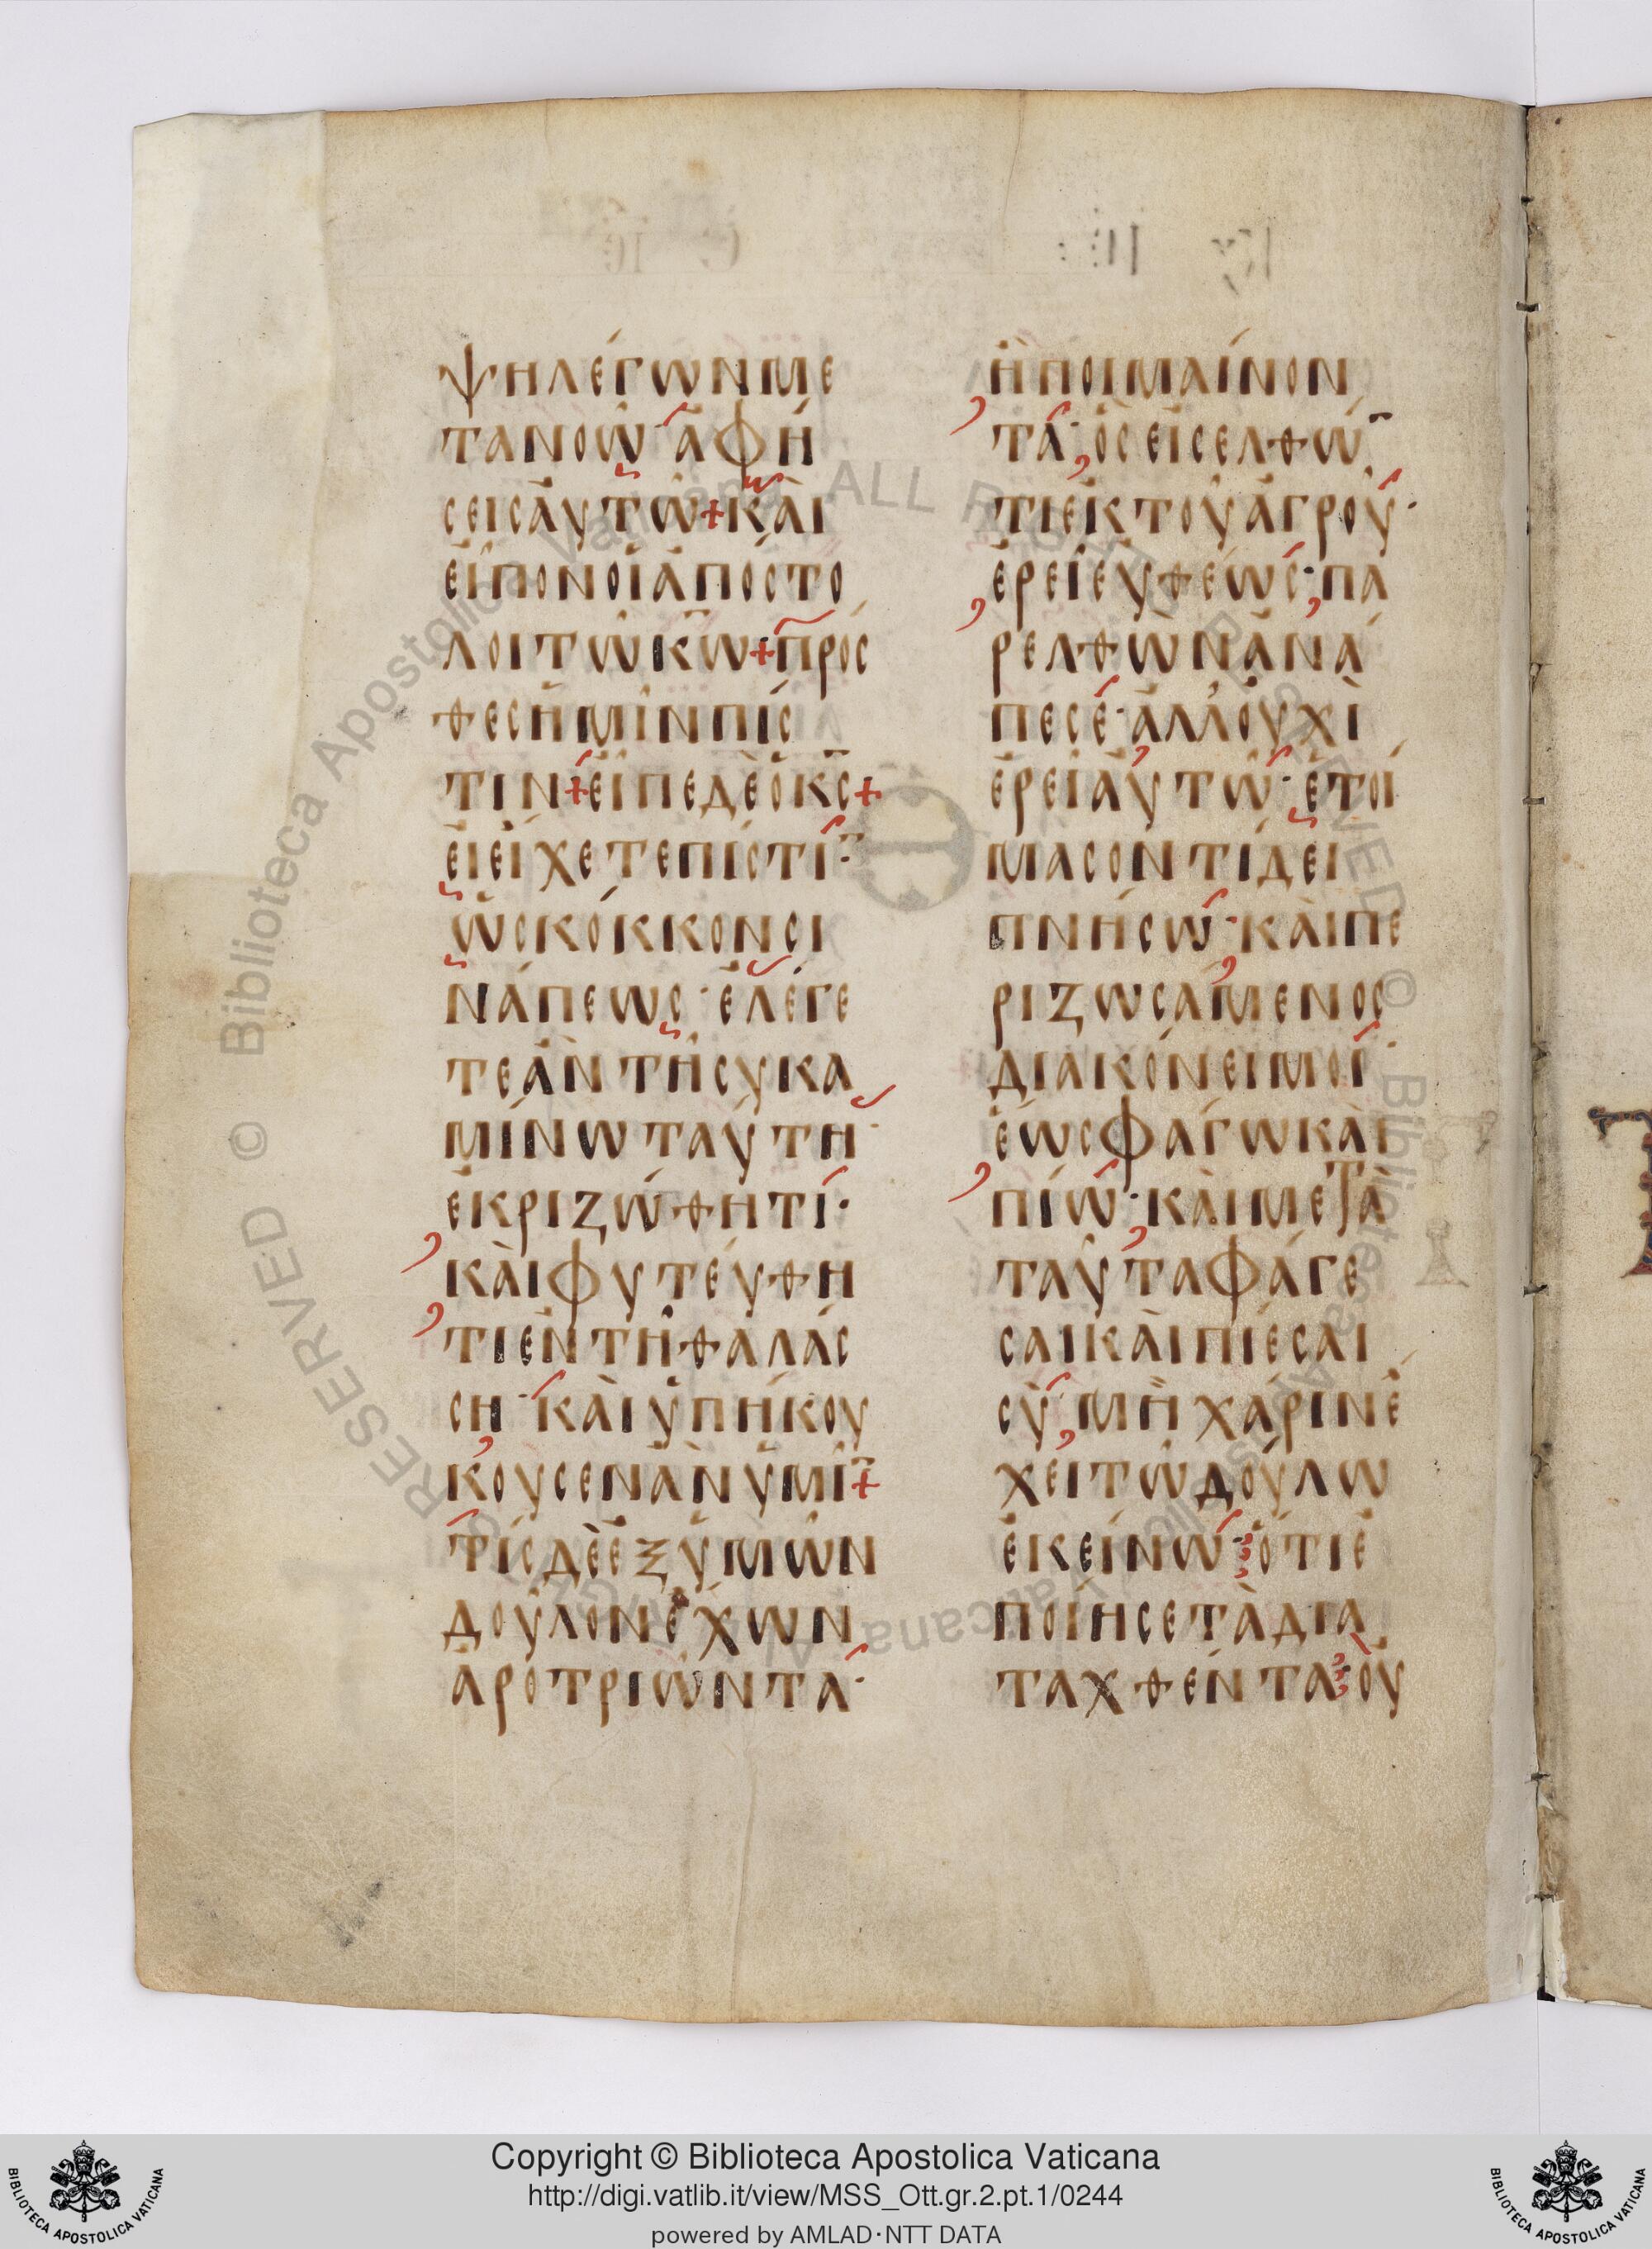 ψη λέγων με
τανοῶ· ἀφή
σεις αὐτῷ + καὶ
εἶπον οἱ ἀπόστο
λοι τῷ κ̅ω̅ + πρόσ
θες ἡμῖν πίσ
τιν + εἶπε δὲ ὁ κ̅ς̅ +
εἰ εἴχετε πίστι̅·
ὡς κόκκον σι
νάπεως· ἐλέγε
τε ἂν τῇ συκα
μίνω ταύτη·
ἐκριζώθητι·
καὶ φυτεύθη
τι ἐν τῇ θαλάσ
ση· καὶ ὑπήκου
κουσεν ἂν ὑμῖ̅ +
τίς δὲ ἐξ ὑμῶν
δοῦλον ἔχων
ἀροτριῶντα·
ἢ ποιμαίνον
τα· ὃς εἰσελθώ̅
τι ἐκ τοῦ ἀγροῦ·
ἐρεῖ εὐθέως· πα
ρελθὼν ἀνά
πεσέ· ἀλλ' οὐχὶ
ἐρεῖ αὐτῷ· ἑτοί
μασον τί δει
πνήσω· καὶ πε
ριζωσάμενος
διακόνει μοι·
ἕως φάγω καὶ
πίω· καὶ μετὰ
ταῦτα φάγε
σαι καὶ πίεσαι
σύ, μὴ χάριν ἔ
χει τῷ δούλω
ἐκείνω· ὅτι ἐ
ποίησε τὰ δια
ταχθέντα· οὐ
Copyright © Biblioteca Apostolica Vaticana
http://digi.vatlib.it/view/MSS_Ott.gr.2.pt.1/0244
powered by AMLAD·NTT DATA
BIBLIOTECA APOSTOLICA VATICANA
BIBLIOTECA APOSTOLICA VATICANA